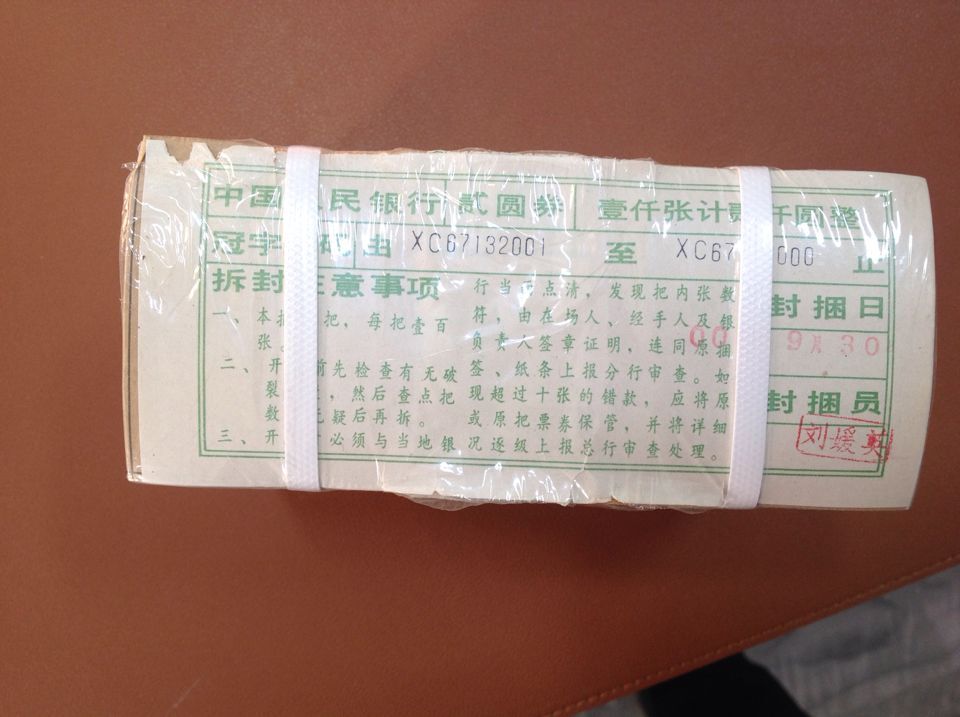 中国 民银行贰圆券 壹仟张计贰仟圆整
冠字 码由 XC67132001 至 XC67 000 止
拆封注意事项
一、本 把，每把壹百
张。
二、开 前先检查有无破
裂 ，然后查点把
数 无疑后再拆。
三、开 必须与当地银
行当 点清，发现把内张数
符，由在场人、经手人及银
负责人签章证明，连同原捆
签、纸条上报分行审查。如
现超过十张的错款，应将原
或原把票券保管，并将详细
况逐级上报总行审查处理。
封捆日
00 9月30
封捆员
刘媛英